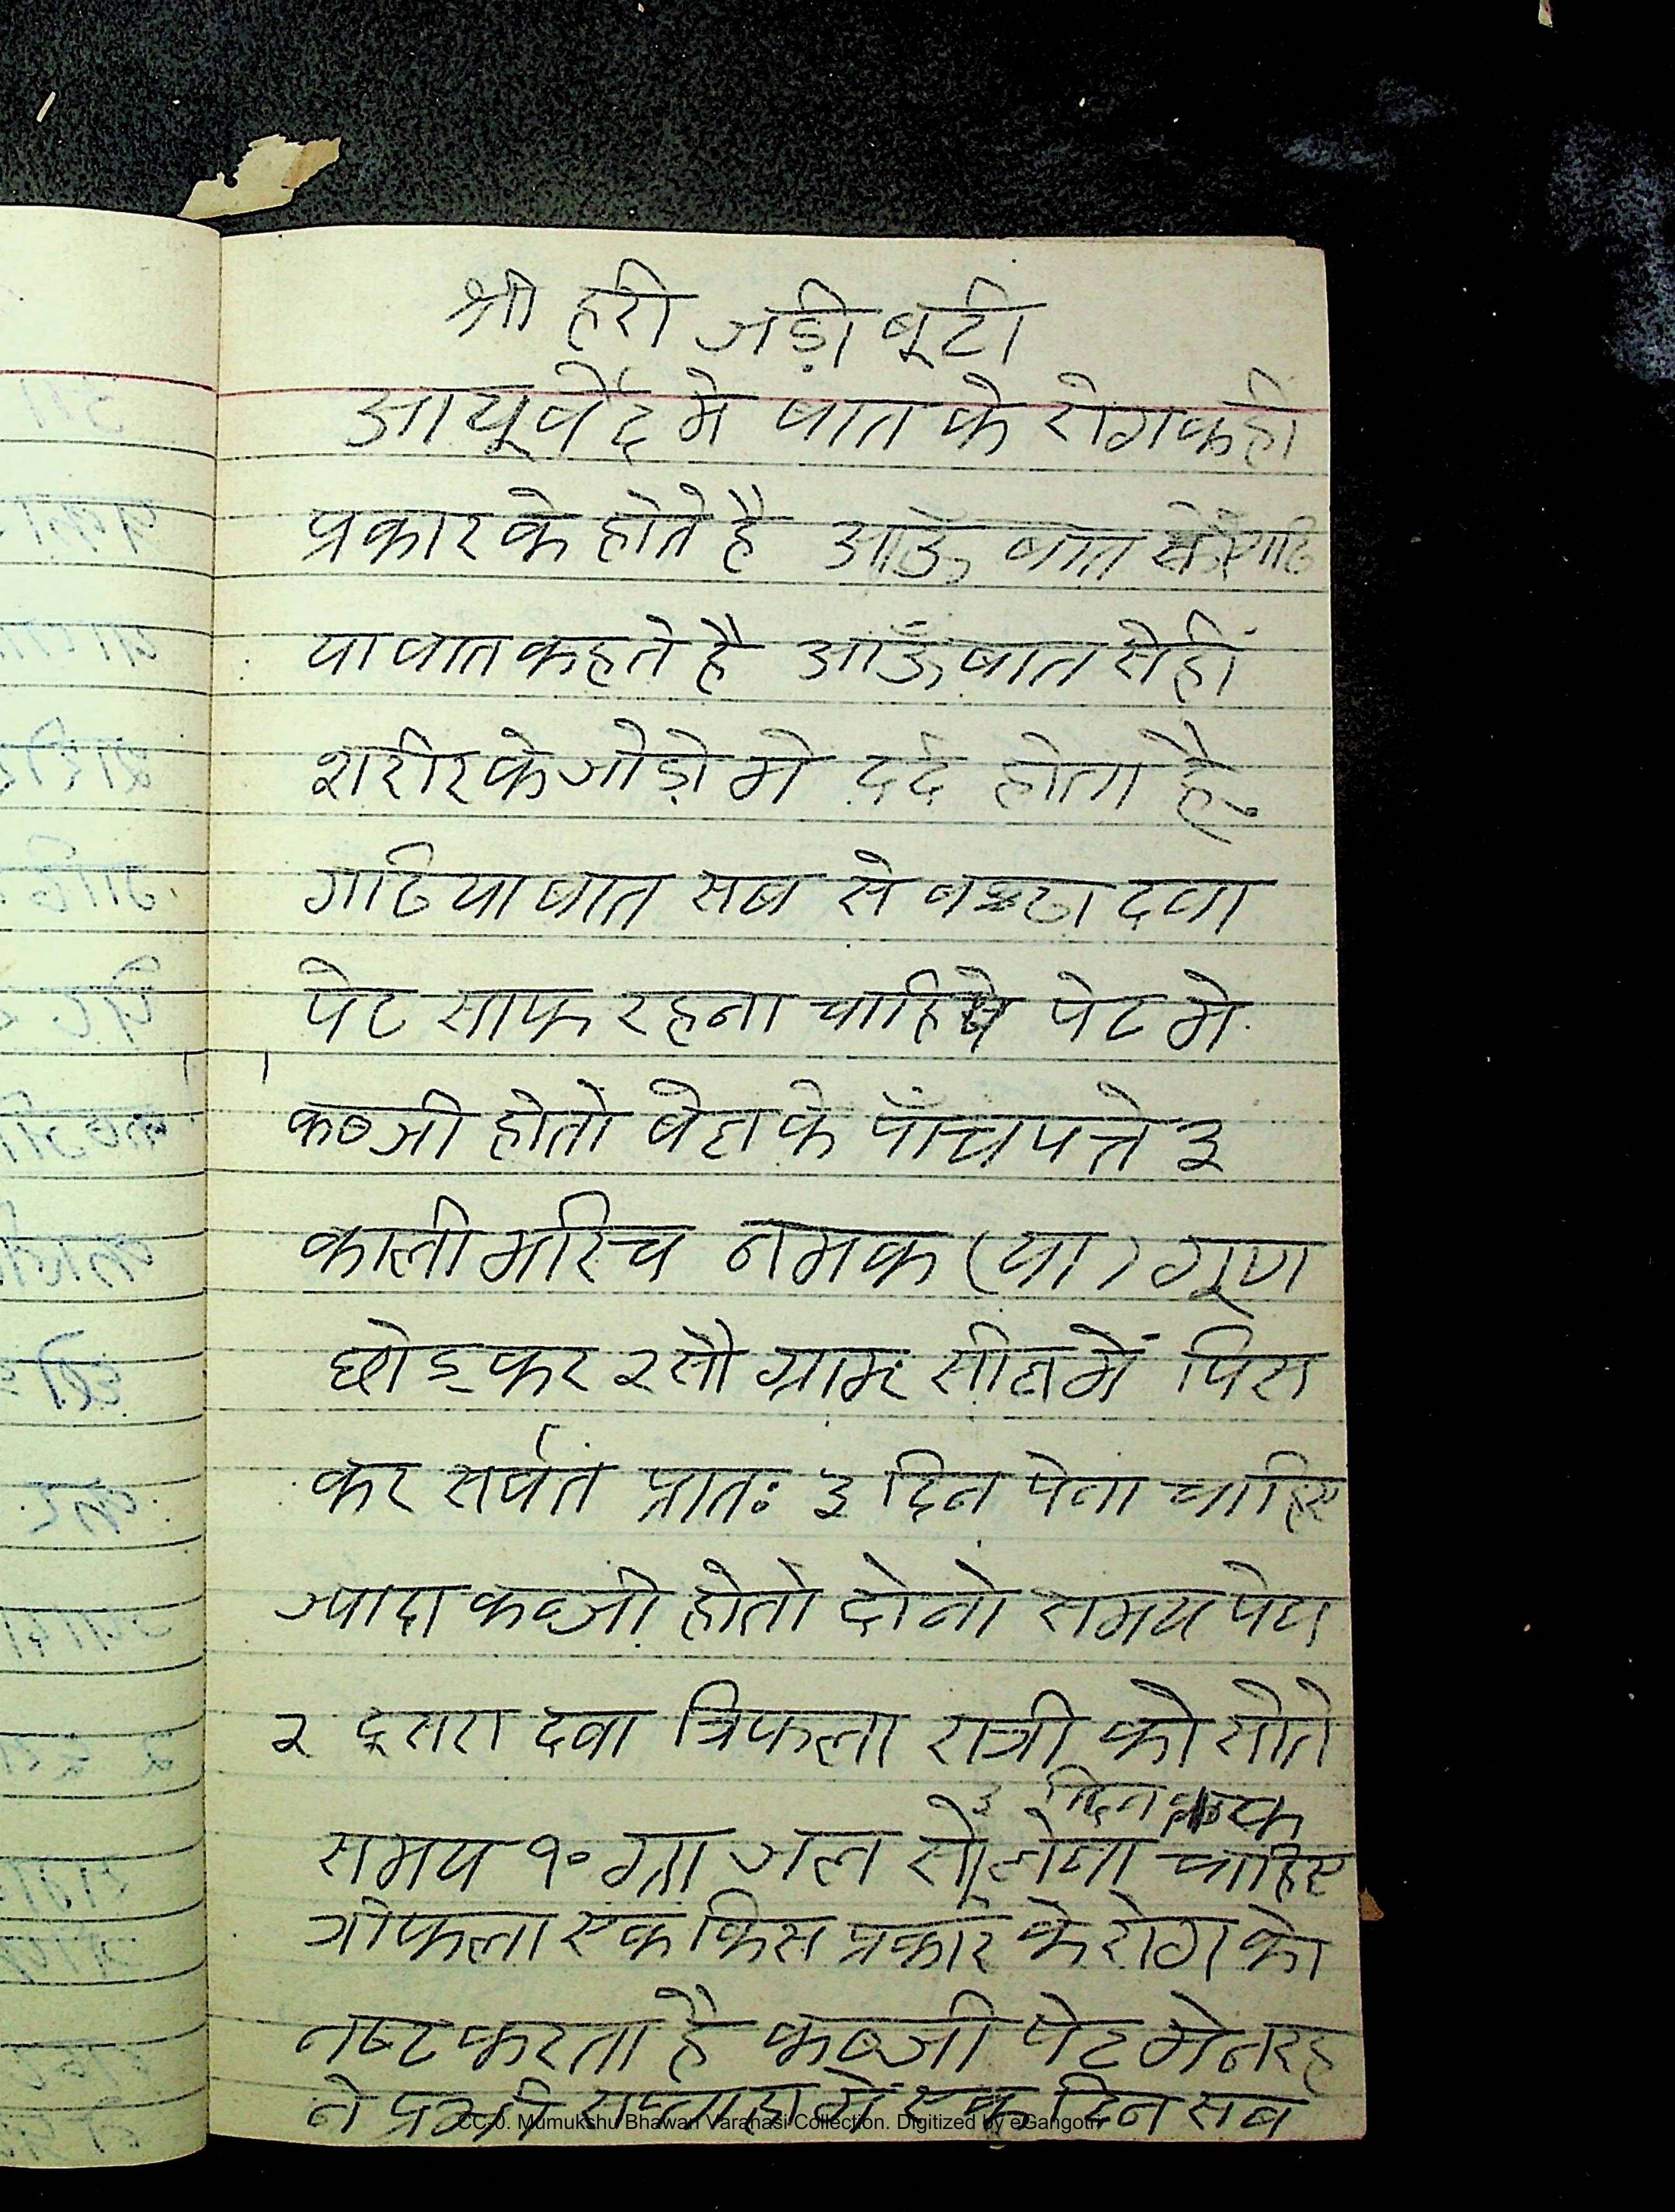 श्री हरी जड़ी बूटी
आयूर्वेद मे वात के रोग कही
प्रकार के होते है आऊँ वात गठि
या वात कहते है आऊँ वात से ही
शरीर के जोड़ो मे दर्द होता है
गठिया वात सब से दवा
पेट साफ रहना चाहिये पेट मे
कब्जी होतो बेल के पाँच पत्ते ३
काली मरिच नमक (या) गूण
छोड़कर २ सौ ग्राम में पिस
कर सर्वत प्रातः ३ दिन पेना चाहिए
ज्यादा कब्जी होतो दोनो समय पेय
२ दूसरा दवा त्रिफला रात्री को सोते
३ दिन तक
समय १० ग्रा जल से लेना चाहिए
त्रीफला एक किस प्रकार के रोग को
नष्ट करता है कब्जी पेट मे न रह
ने सप्ताह में एक दिन सब
CC-0. Mumukshu Bhawan Varanasi Collection. Digitized by eGangotri